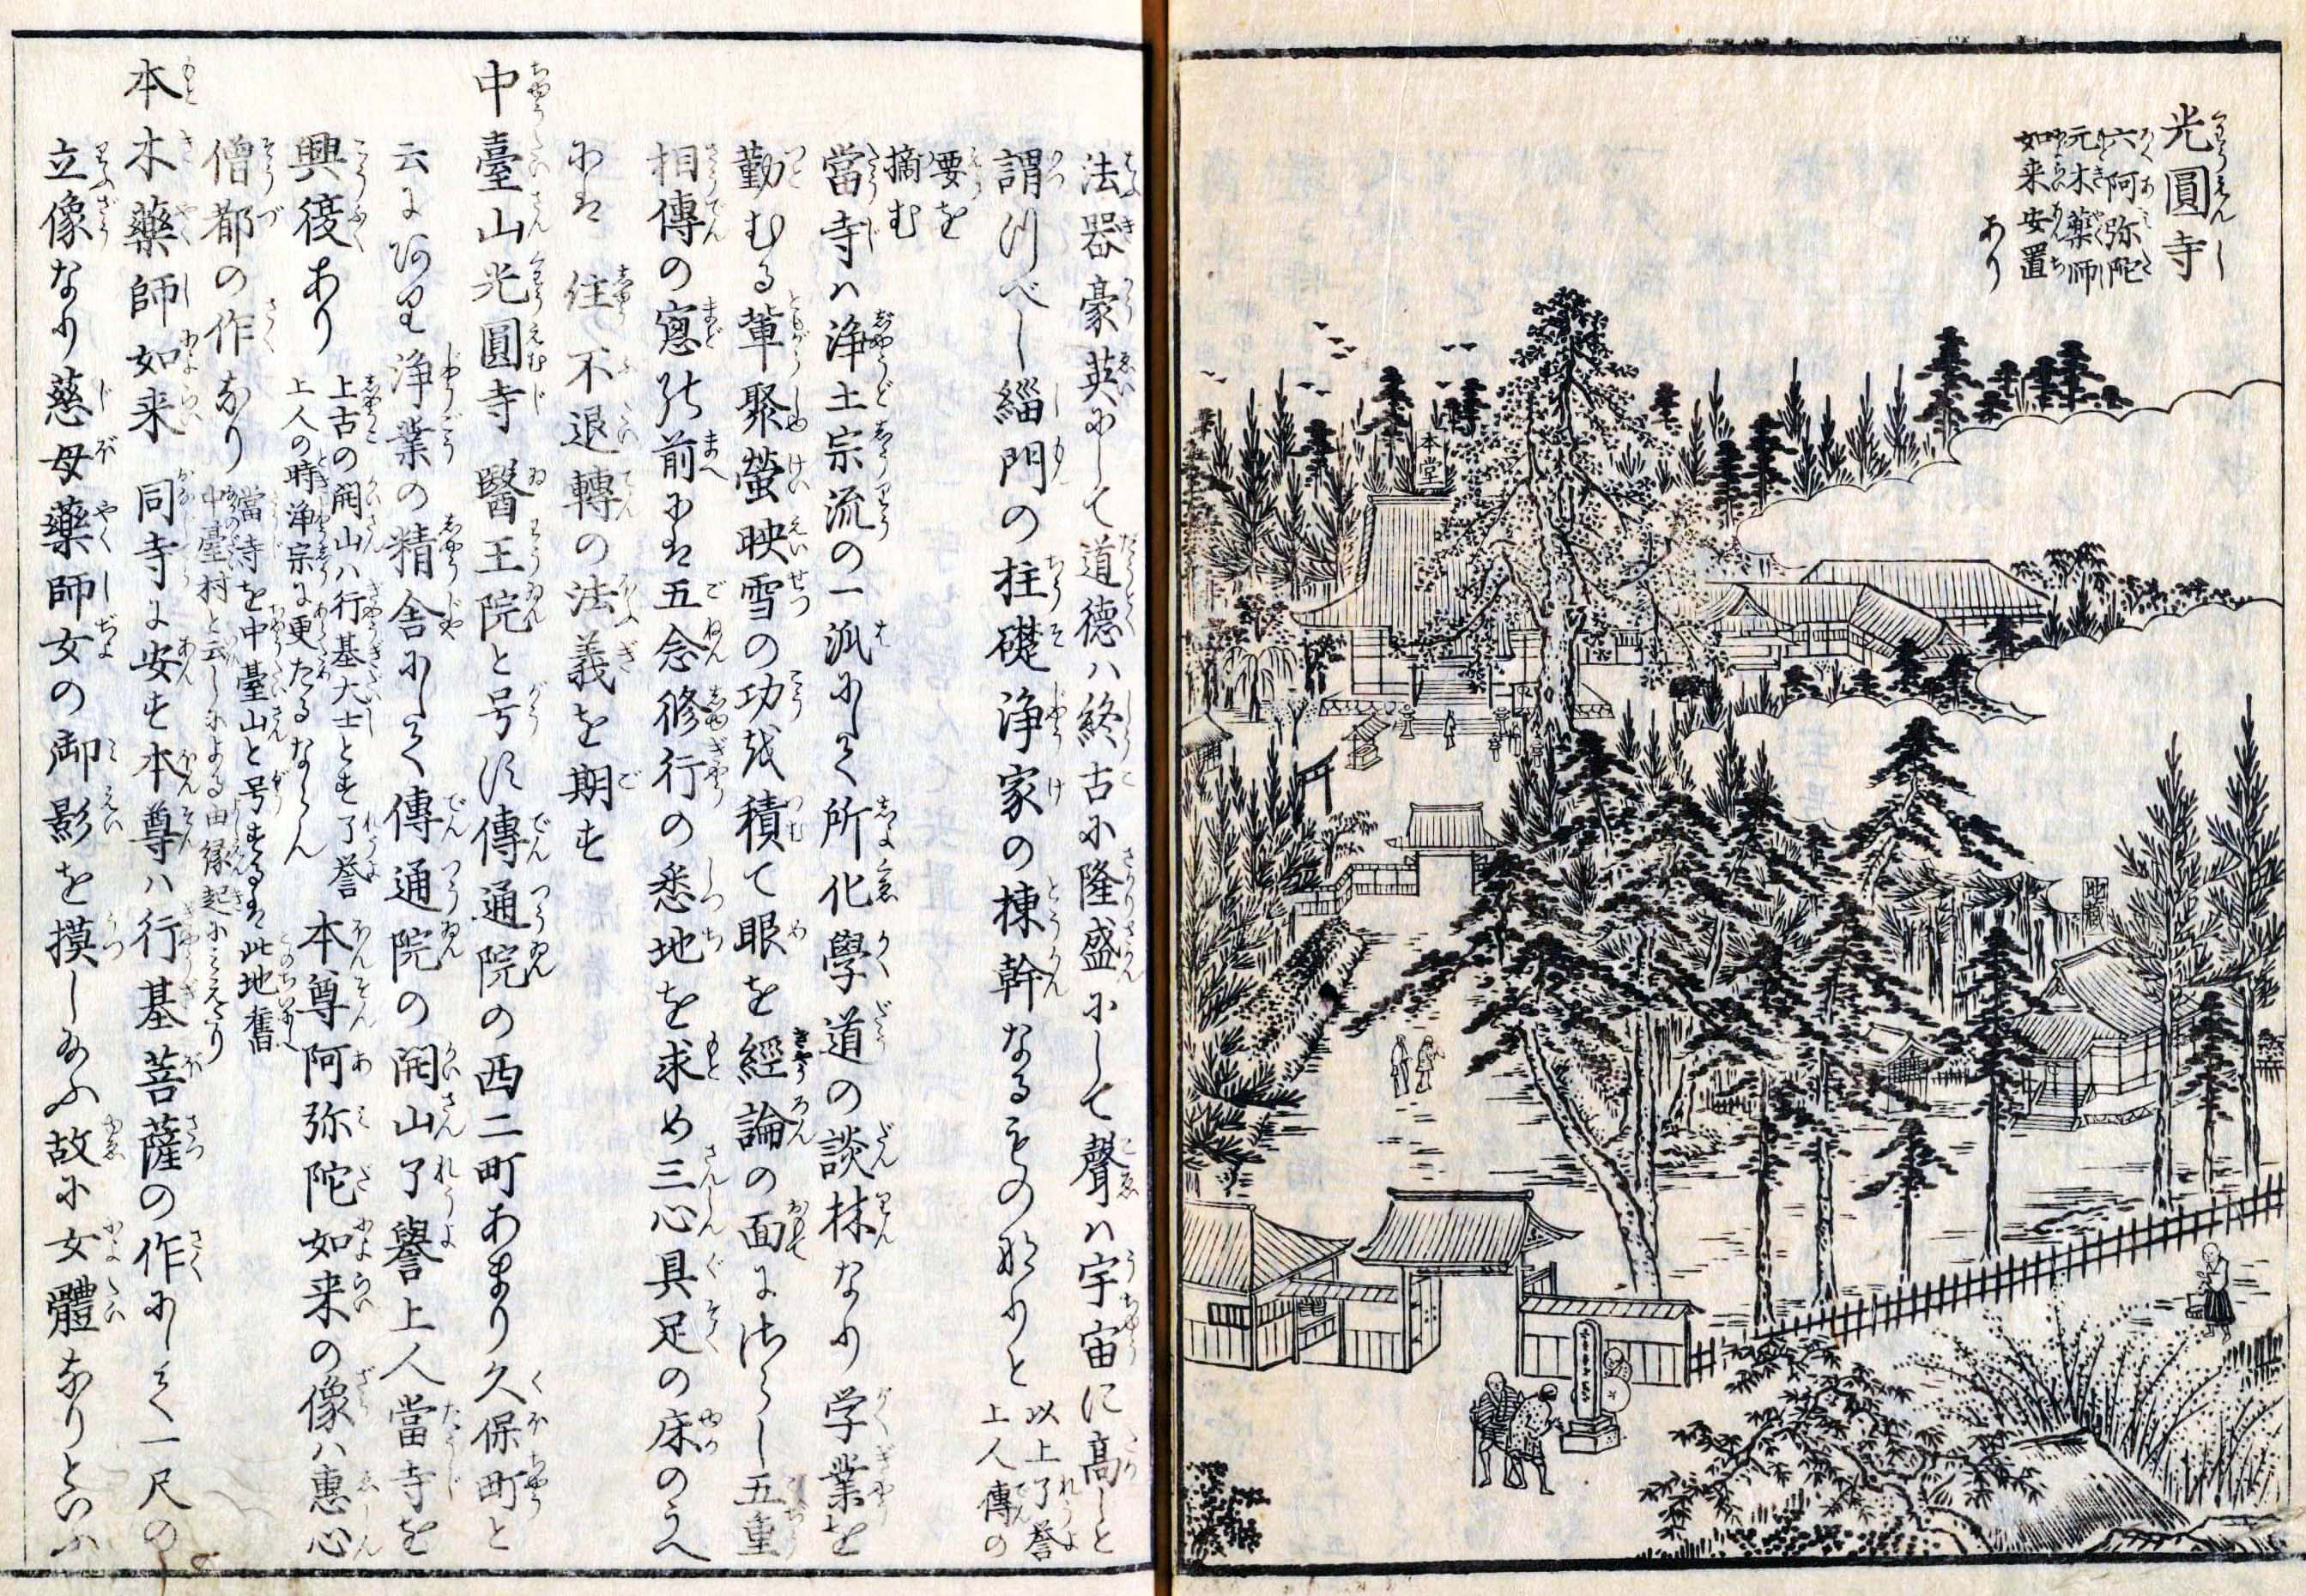 光圓寺
六阿弥陀
元木薬師
如来安置
あり
本堂
地蔵
法器豪英にして道徳ハ終古に隆盛にして聲ハ宇宙に高しと
謂つべし緇門の柱礎浄家の棟幹なるもの歟りと 以上了誉
上人傳の
要を
摘む
當寺ハ浄土宗流の一派にして所化學道の談林なり学業を
勤むる輩聚螢映雪の功を積て眼を經論の面にさらし五重
相傳の窓の前には五念修行の悉地を求め三心具足の床のうへ
には住不退轉の法義を期す
中臺山光圓寺 醫王院と号す傳通院の西二町あまり久保町と
云にあり浄業の精舎にして傳通院の開山了譽上人當寺を
興復あり 上古の開山ハ行基大士とす了誉
上人の時浄宗に更たるならん 本尊阿弥陀如来の像ハ惠心
僧都の作なり 當寺を中臺山と号するは此地舊
中臺村と云しによる由縁起にみえたり
本木藥師如来 同寺に安す本尊ハ行基菩薩の作にして一尺の
立像なり慈母藥師女の御影を摸し給ふ故に女體なりといふ